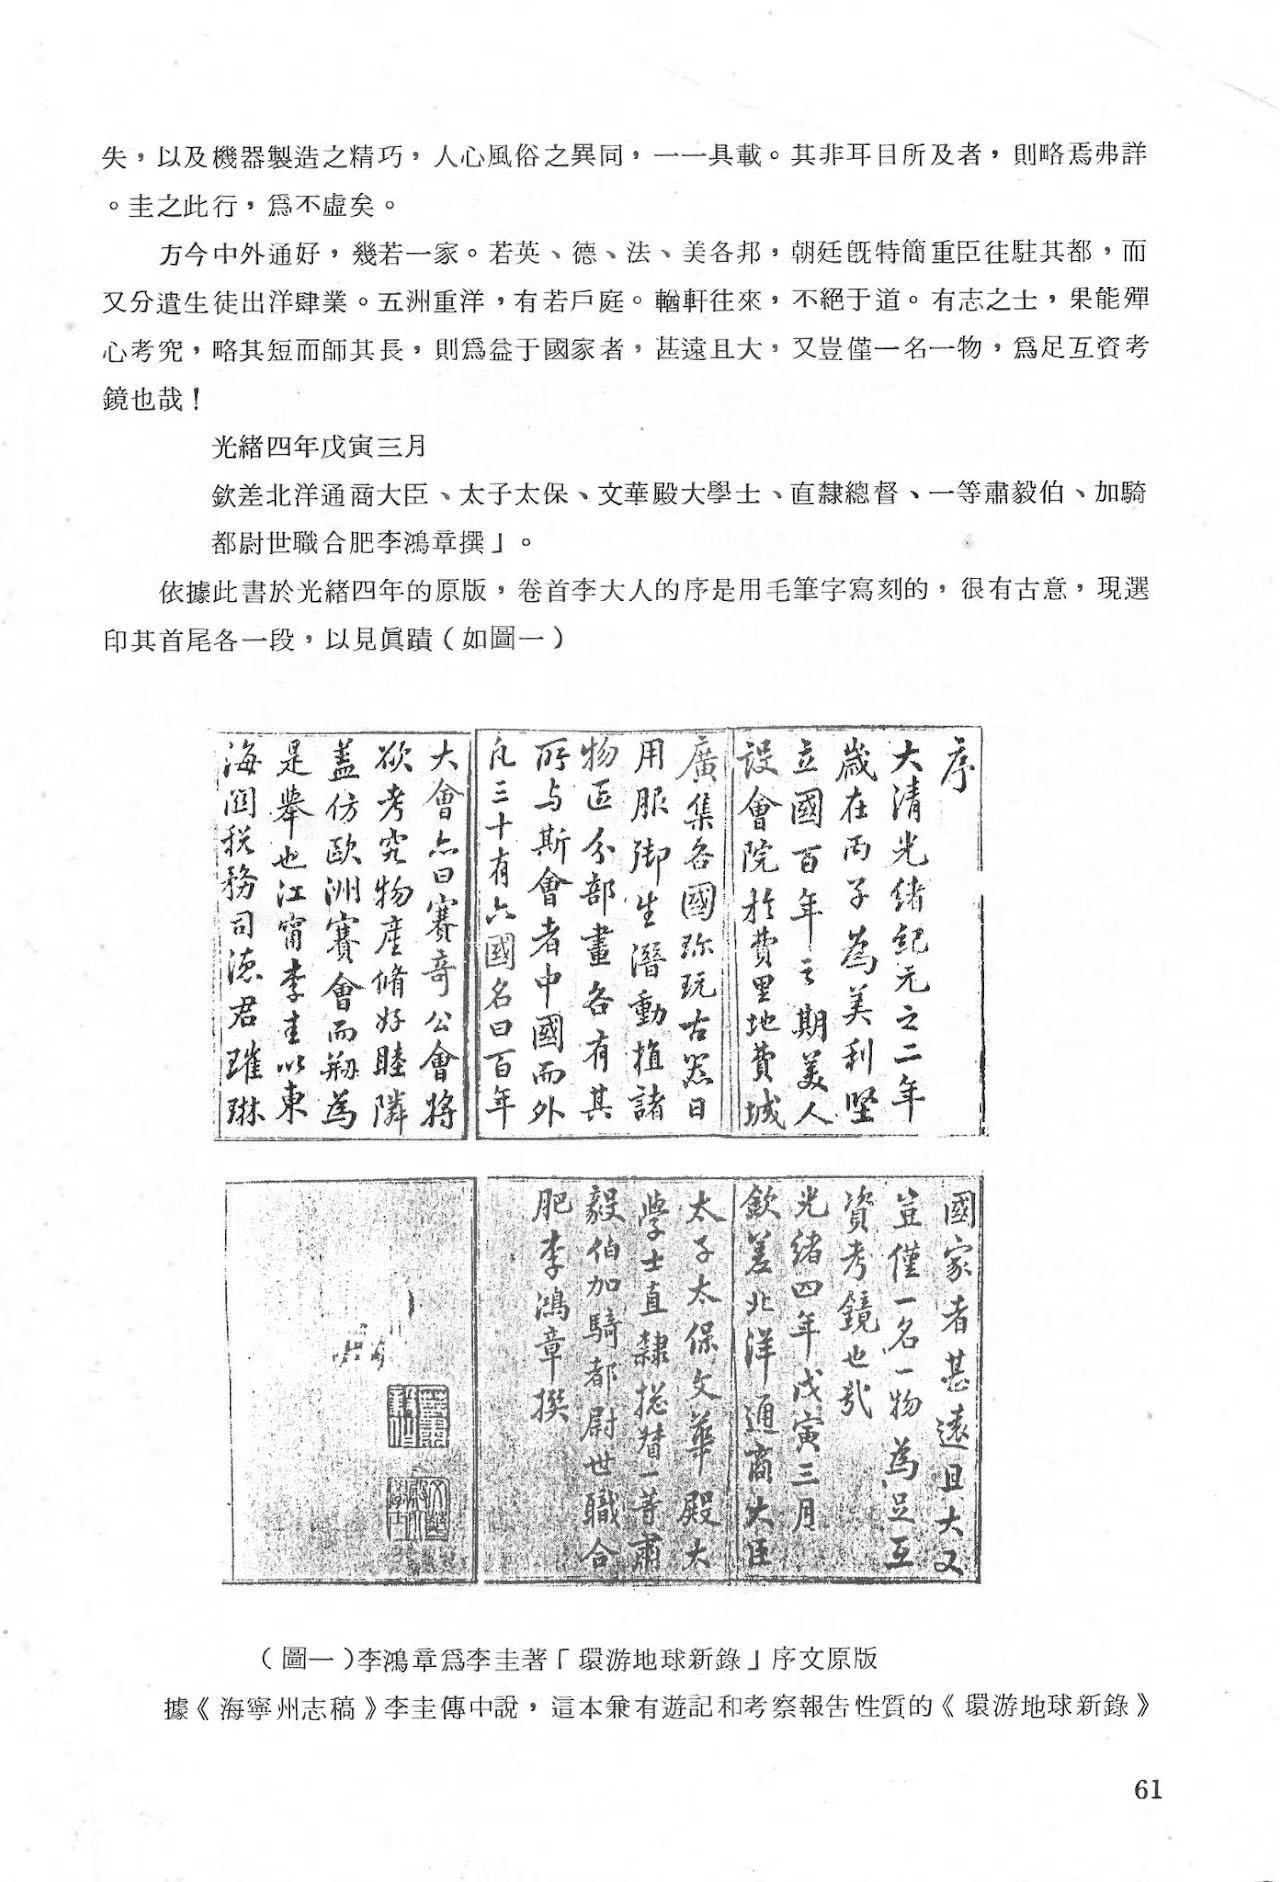 失，以及機器製造之精巧，人心風俗之異同，一一具載。其非耳目所及者，則略焉弗詳
。圭之此行，爲不虛矣。
方今中外通好，幾若一家。若英、德、法、美各邦，朝廷旣特簡重臣往駐其都，而
又分遣生徒出洋肆業。五洲重洋，有若戶庭。輶軒往來，不絕于道。有志之士，果能殫
心考究，略其短而師其長，則爲益于國家者，甚遠且大，又豈僅一名一物，爲足互資考
鏡也哉！
光緒四年戊寅三月
欽差北洋通商大臣、太子太保、文華殿大學士、直隸總督、一等肅毅伯、加騎
都尉世職合肥李鴻章撰」。
依據此書於光緒四年的原版，卷首李大人的序是用毛筆字寫刻的，很有古意，現選
印其首尾各一段，以見眞蹟（如圖一）
序
大清光緒紀元之二年
歲在丙子為美利堅
立國百年之期美人
設會院於費里地費城
廣集各國珍玩古器日
用服御生潛動植諸
物區分部畫各有其
所与斯會者中國而外
凡三十有六國名曰百年
大會亦曰賽奇公會將
欲考究物產脩好睦隣
盖仿歐洲賽會而剏為
是舉也江甯李圭以東
海関税務司德君璀琳
國家者甚遠且大又
豈僅一名一物為足互
資考鏡也哉
光緒四年戊寅三月
欽差北洋通商大臣
太子太保文華殿大
學士直隸総督一等肅
毅伯加騎都尉世職合
肥李鴻章撰
（圖一）李鴻章爲李圭著「環游地球新錄」序文原版
據《海寧州志稿》李圭傳中說，這本兼有遊記和考察報告性質的《環游地球新錄》
61